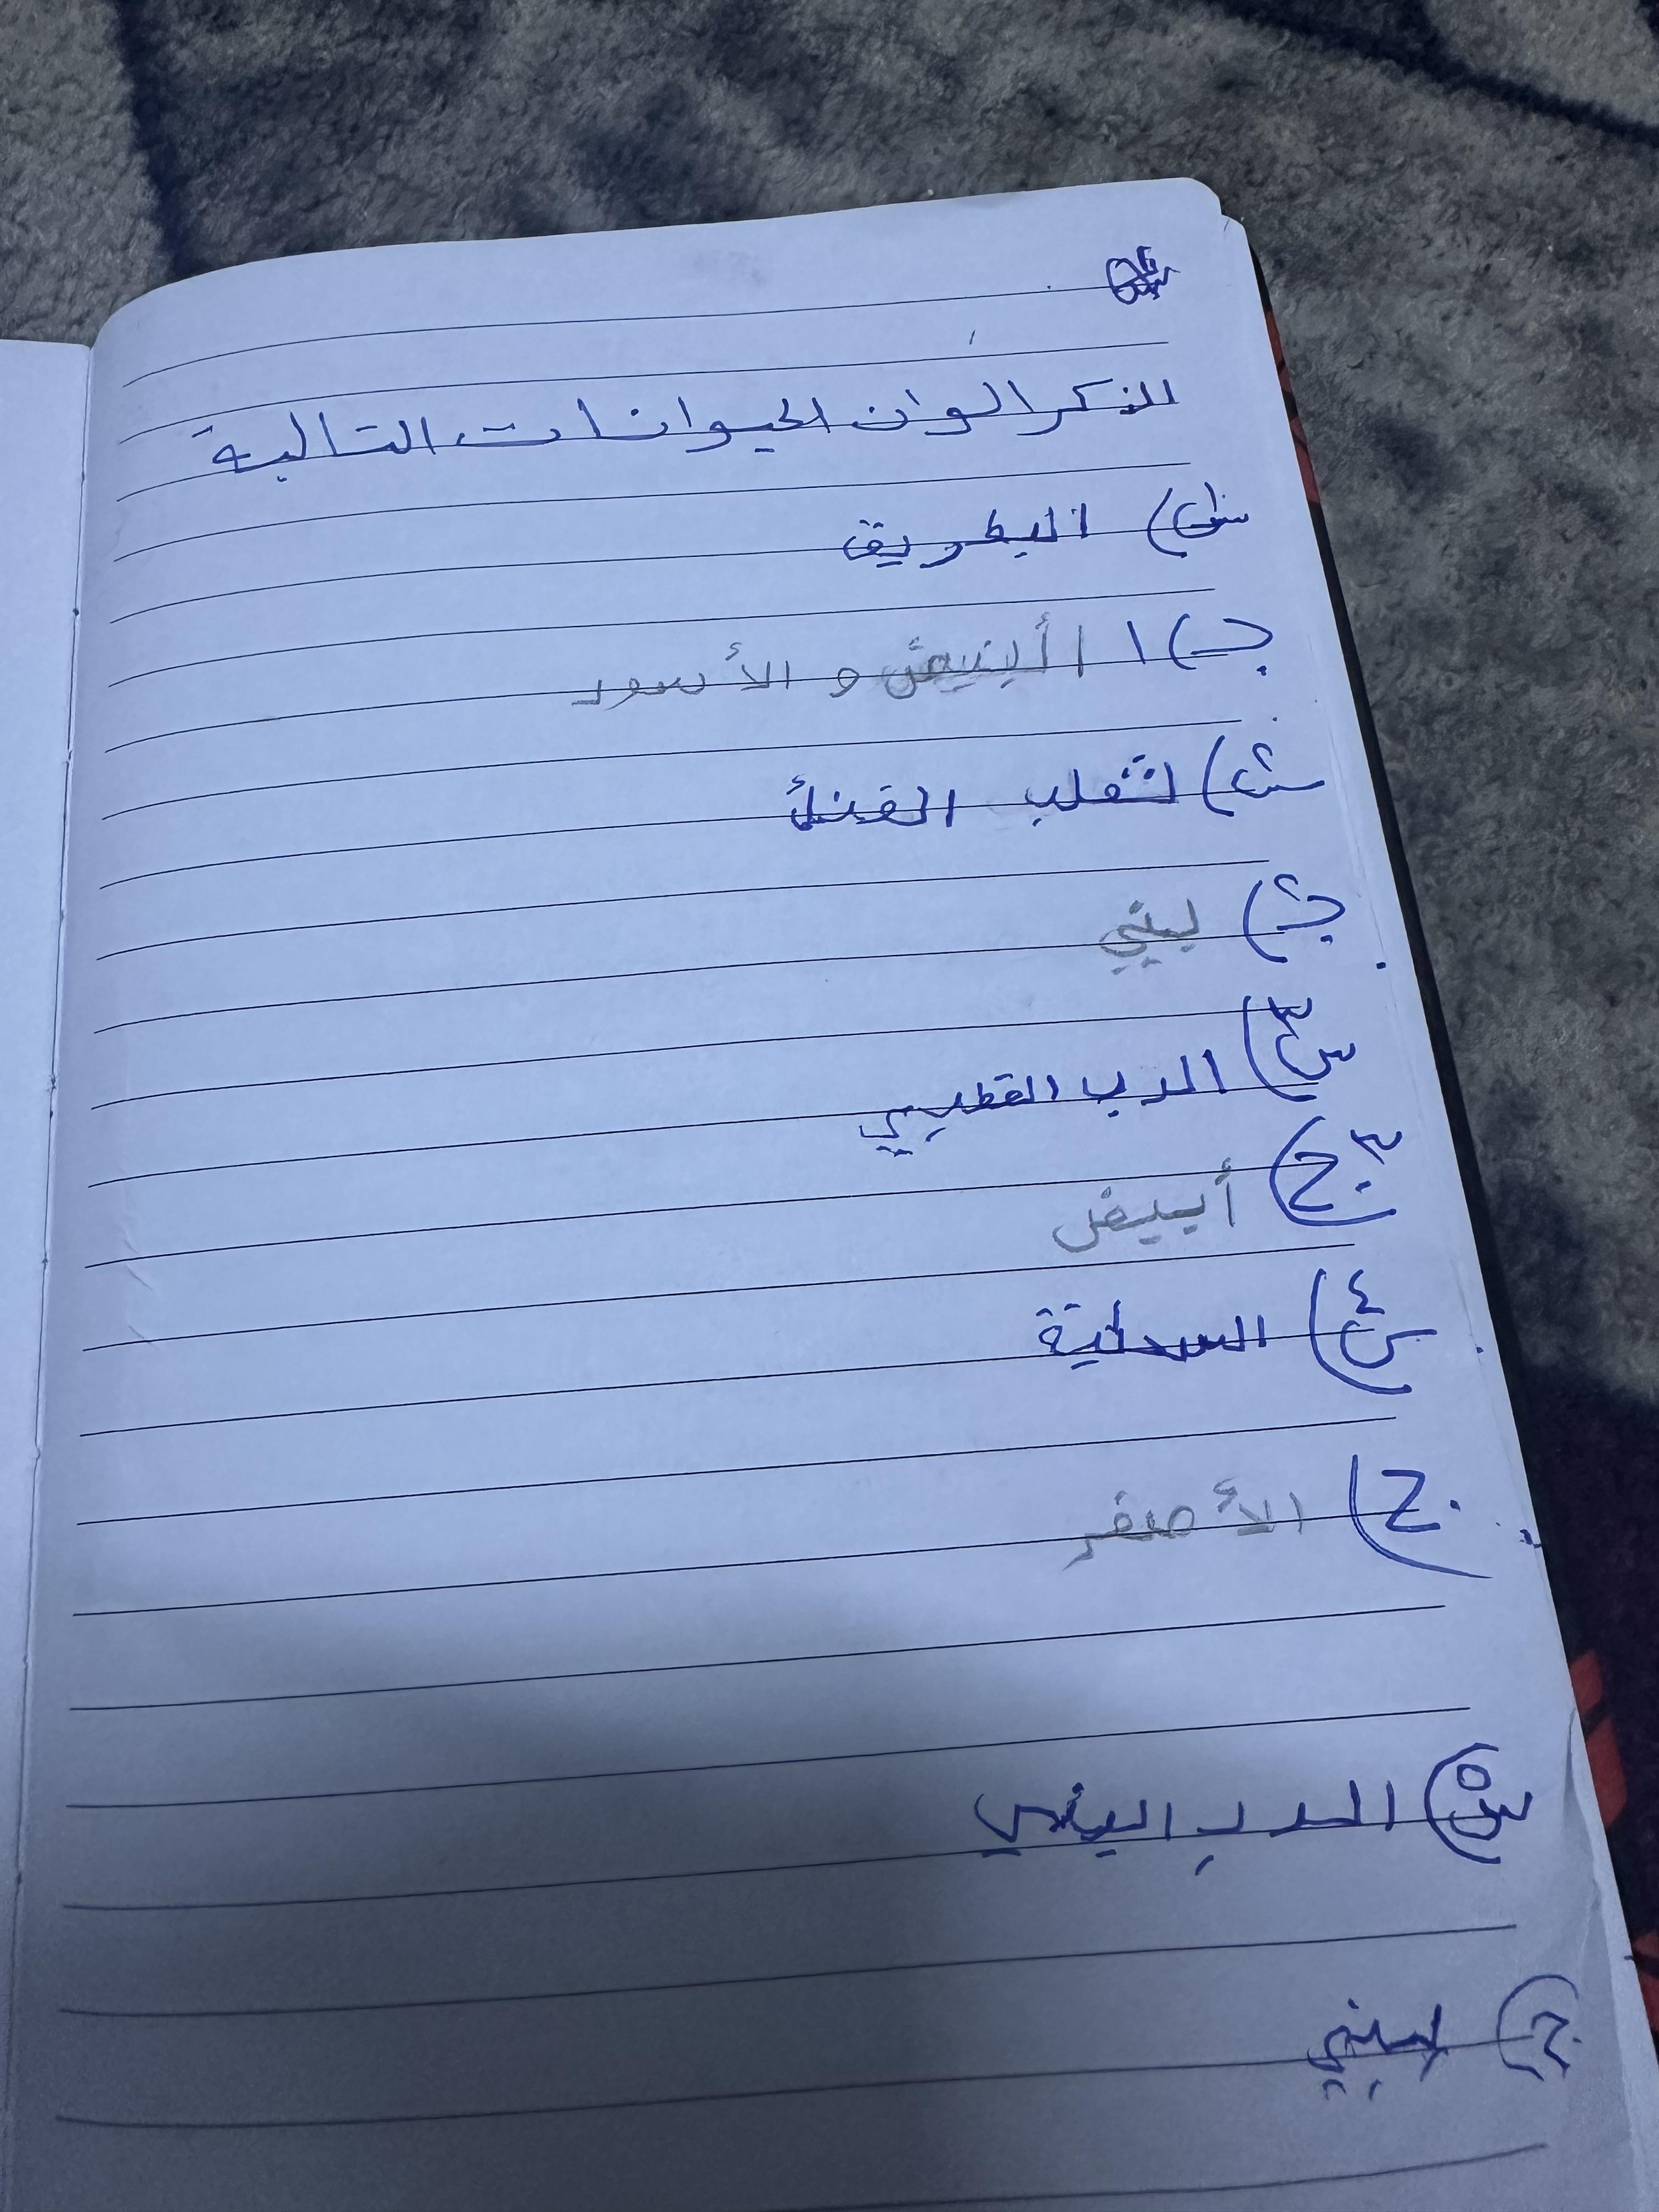 اذكر الوان الحيوانات التالية
س١) البطريق
ج)١ الأبيض و الأسود
س٢) لثعلب الفنك
ج٢) لبني
س٣) الدب القطبيي
ج٣) أبيض
س٤) السحلية
ج) الأصفر
س٥) الدب البني
ج) لبني